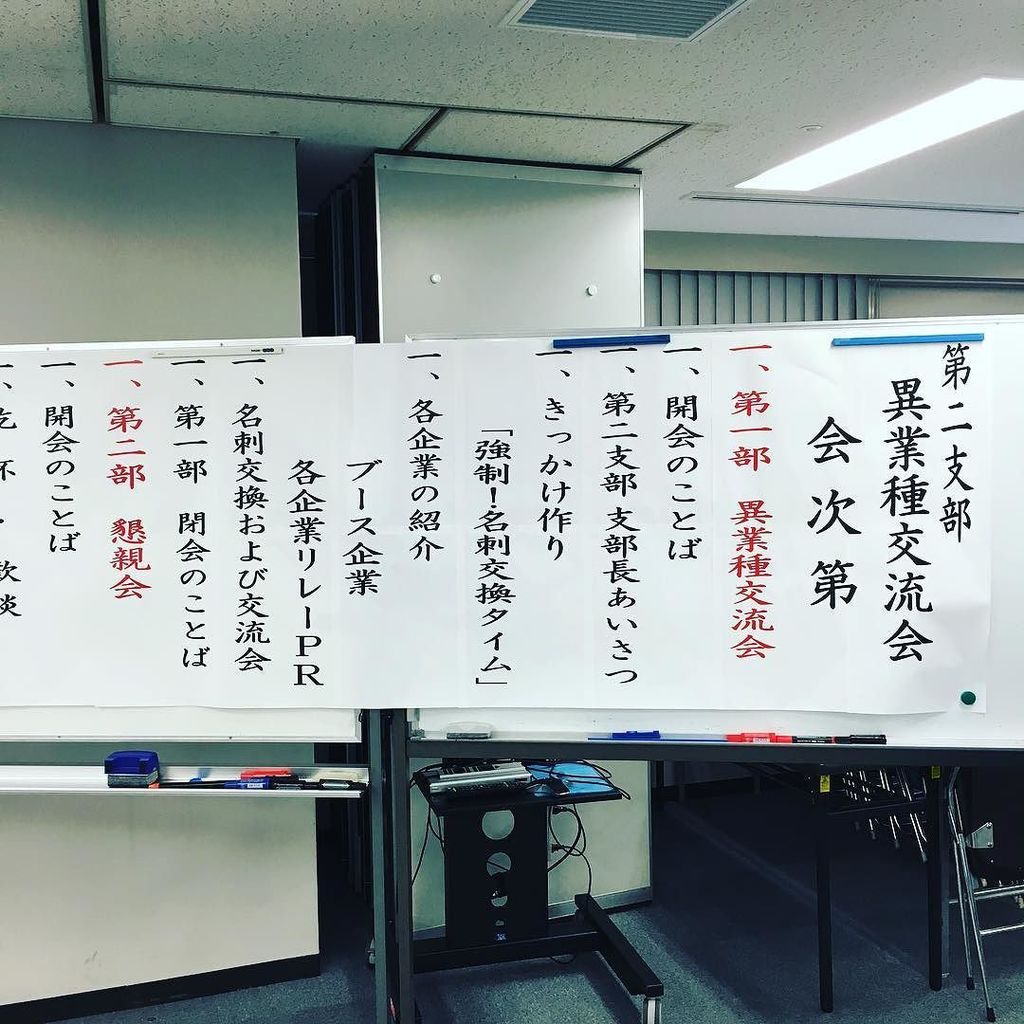 第二支部
異業種交流会
会次第
一、第一部 異業種交流会
一、開会のことば
一、第二支部 支部長あいさつ
一、きっかけ作り
「強制!名刺交換タイム」
一、各企業の紹介
ブース企業
各企業リレーPR
一、名刺交換および交流会
一、第一部 閉会のことば
一、第二部 懇親会
一、開会のことば
一、乾杯・歓談